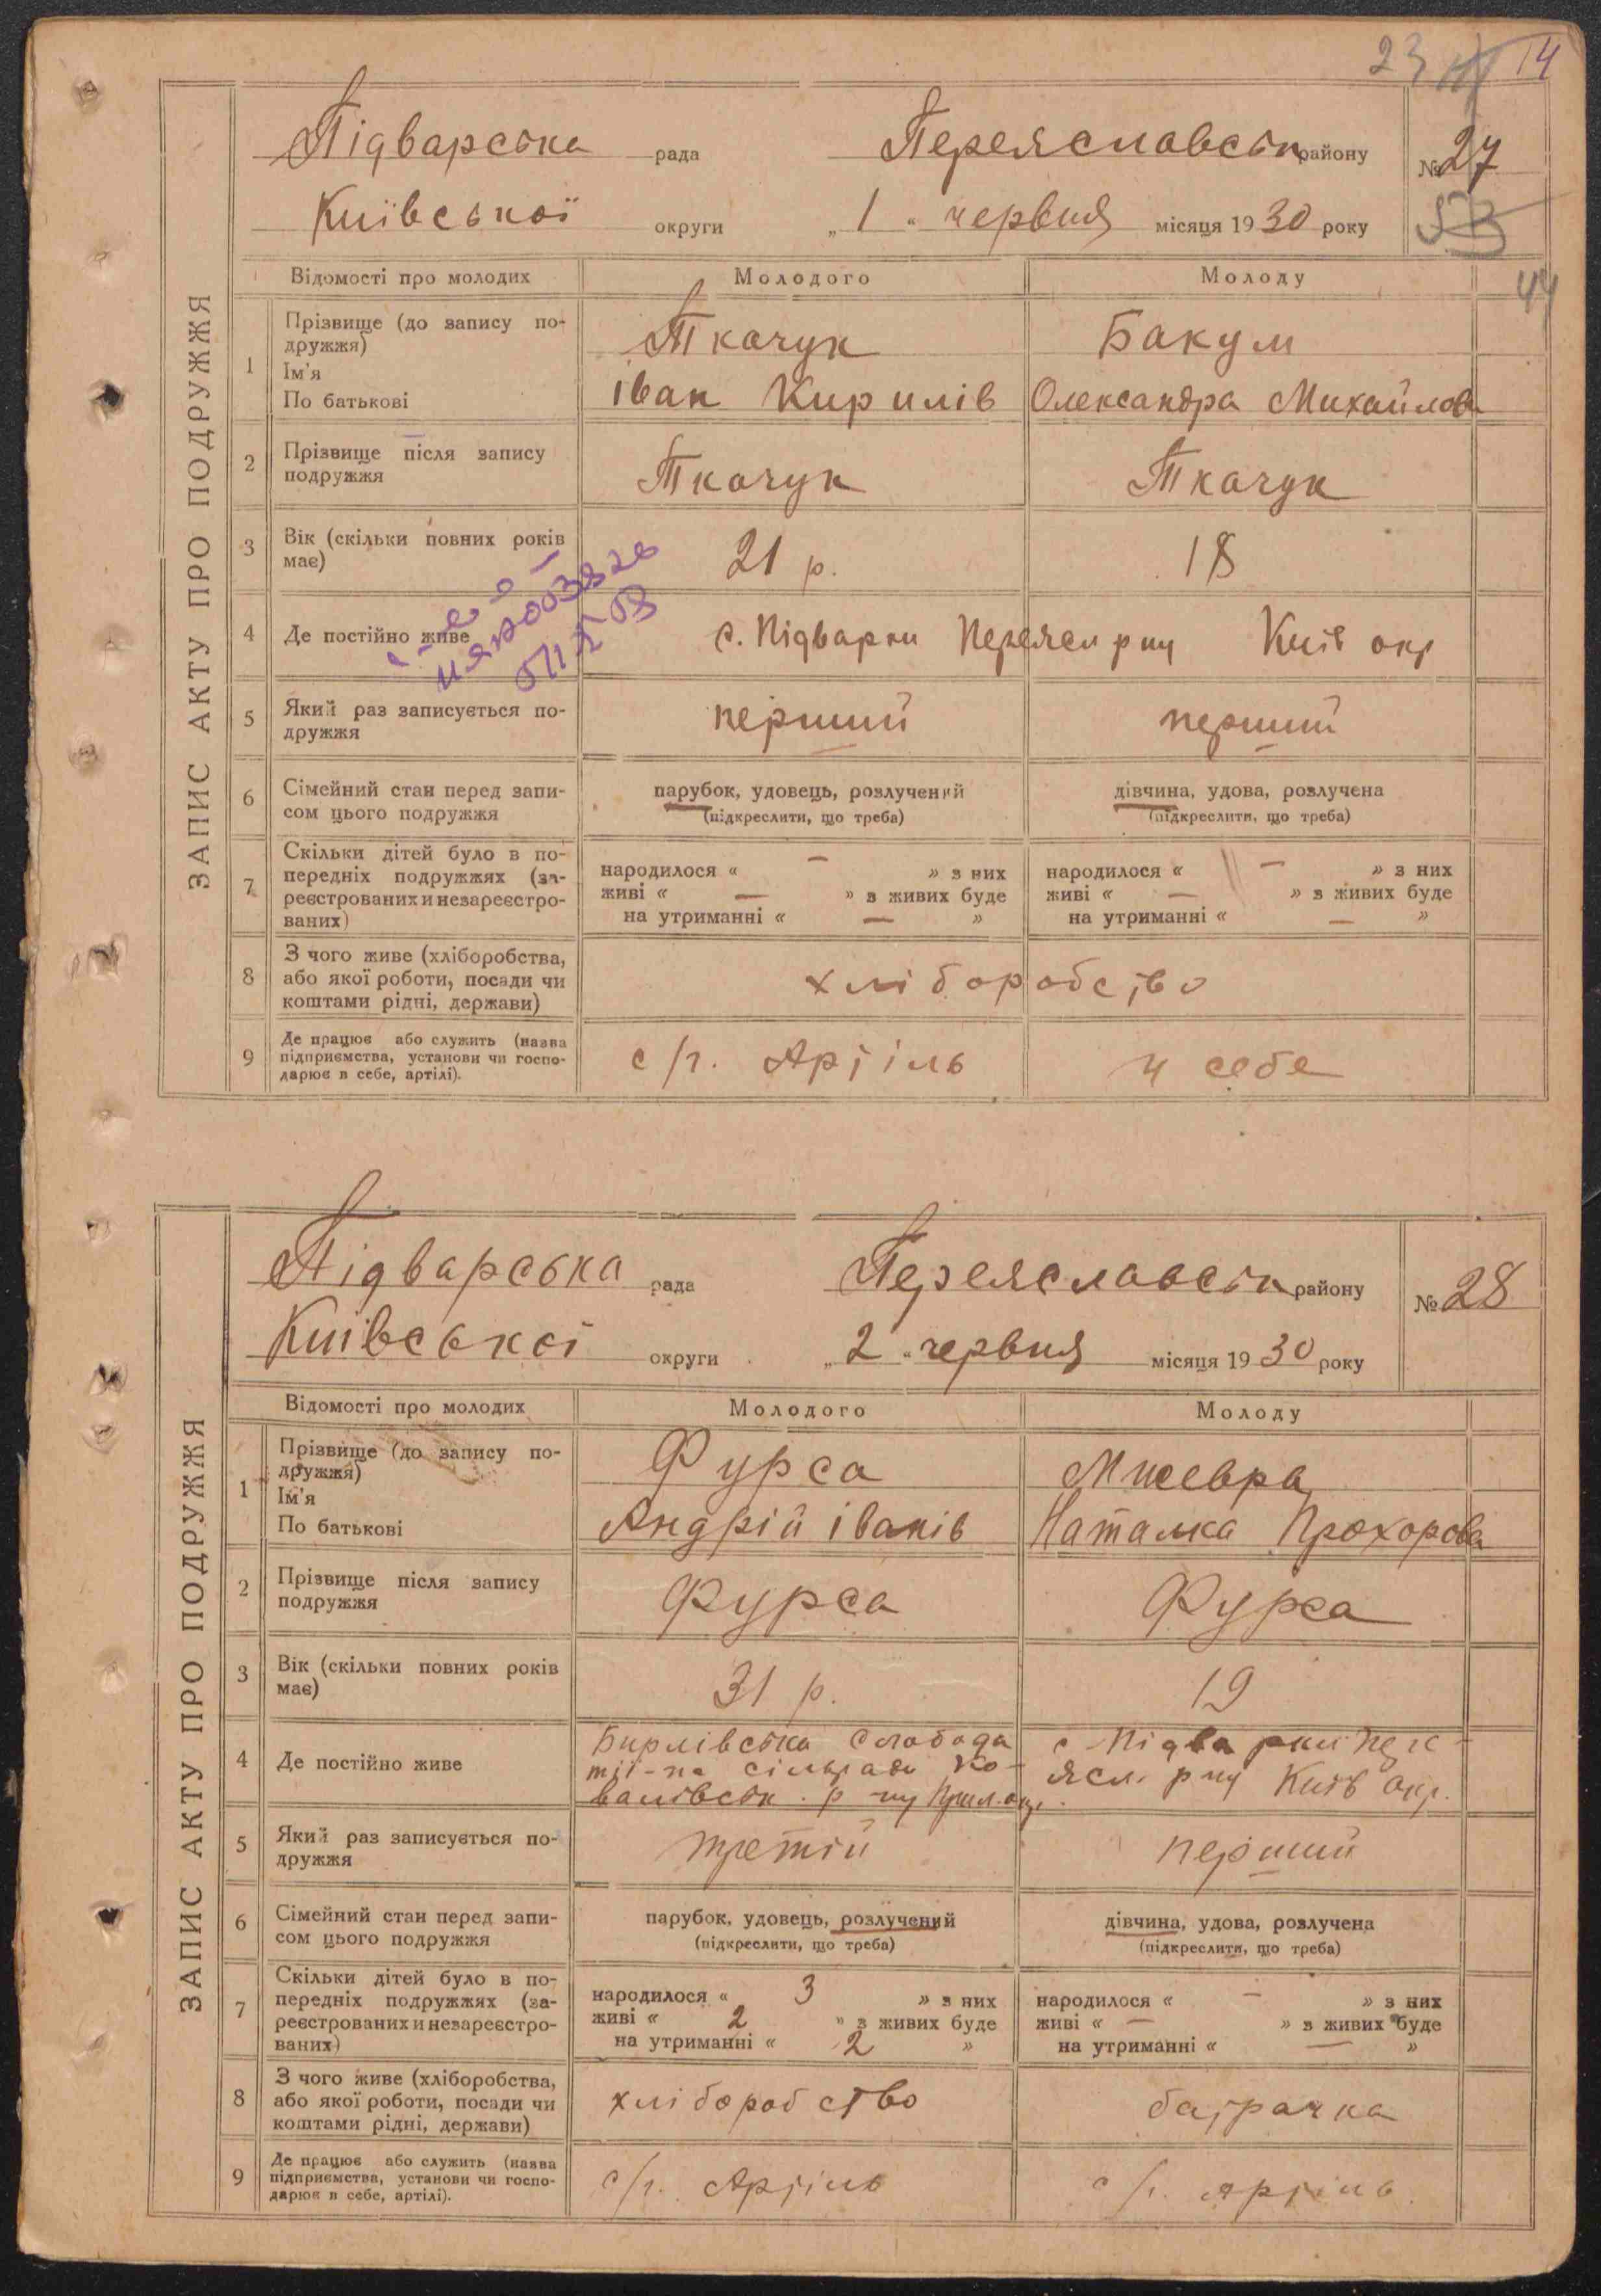 23 14
ЗАПИС АКТУ ПРО ПОДРУЖЖЯ
Підварська рада Переяславськ району № 27
Київської округи „1“ червня місяця 1930 року
44
Відомості про молодих Молодого Молоду
1 Прізвище (до запису по-
дружжя)
Ім'я
По батькові
Ткачук Бакум
Іван Кирилів Олександра Михайлова
2 Прізвище після запису
подружжя
Ткачук Ткачук
3 Вік (скільки повних років
має)
21 р. 18
4 Де постійно живе
с. Підварки Переясл р ну Київ окр
5 Який раз записується по-
дружжя
перший перший
6 Сімейний стан перед запи-
сом цього подружжя
парубок, удовець, розлучений дівчина, удова, розлучена
(підкреслити, що треба) (підкреслити, що треба)
7 Скільки дітей було в по-
передніх подружжях (за-
реєстрованих и незареєстро-
ваних)
народилося « — » з них народилося « — » з них
живі « — » з живих буде живі « — » з живих буде
на утриманні « — » на утриманні « — »
8 З чого живе (хліборобства,
або якої роботи, посади чи
коштами рідні, держави)
хліборобство
9 Де працює або служить (назва
підприємства, установи чи госпо-
дарює в себе, артілі).
с/г. Артіль у себе
ЗАПИС АКТУ ПРО ПОДРУЖЖЯ
Підварська рада Переяславськ району № 28
Київської округи „2“ червня місяця 1930 року
Відомості про молодих Молодого Молоду
1 Прізвище (до запису по-
дружжя)
Ім'я
По батькові
Фурса
Андрій Іванів Наталка Прохорова
2 Прізвище після запису
подружжя
Фурса Фурса
3 Вік (скільки повних років
має)
31 р. 19
4 Де постійно живе
Бирлівська Слобода с Підварки Пере-
сільради ясл. р ну Київ окр.
р-ну
5 Який раз записується по-
дружжя
третій перший
6 Сімейний стан перед запи-
сом цього подружжя
парубок, удовець, розлучений дівчина, удова, розлучена
(підкреслити, що треба) (підкреслити, що треба)
7 Скільки дітей було в по-
передніх подружжях (за-
реєстрованих и незареєстро-
ваних)
народилося « 3 » з них народилося « — » з них
живі « 2 » з живих буде живі « — » з живих буде
на утриманні « 2 » на утриманні « — »
8 З чого живе (хліборобства,
або якої роботи, посади чи
коштами рідні, держави)
хліборобство батрачка
9 Де працює або служить (назва
підприємства, установи чи госпо-
дарює в себе, артілі).
с/г. Артіль с/г. артіль